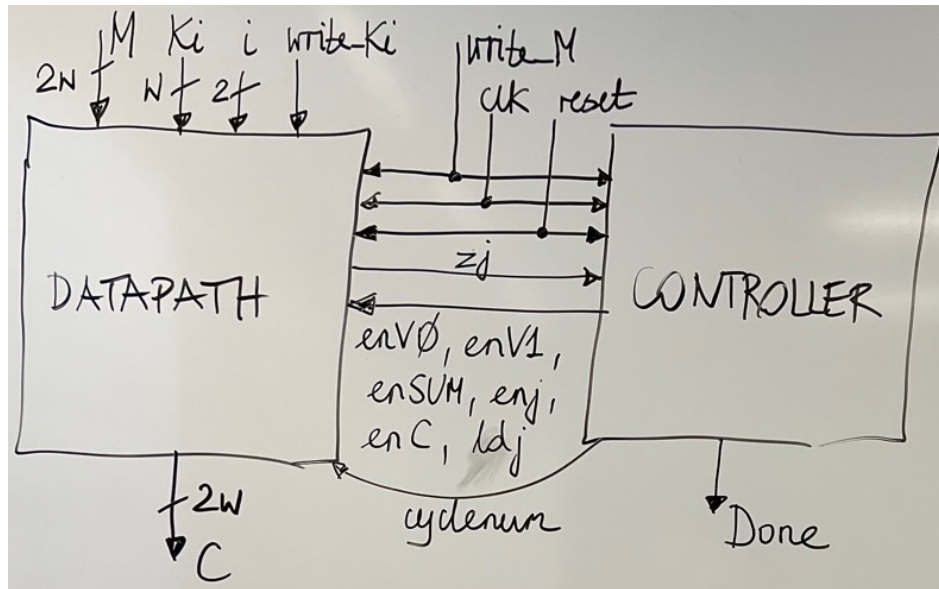 M Ki i write_Ki
write_M
2w w 2
clk reset
zj
DATAPATH
CONTROLLER
enVØ, enV1,
enSUM, enj,
enC, ldj
2w
cyclenum
C
Done